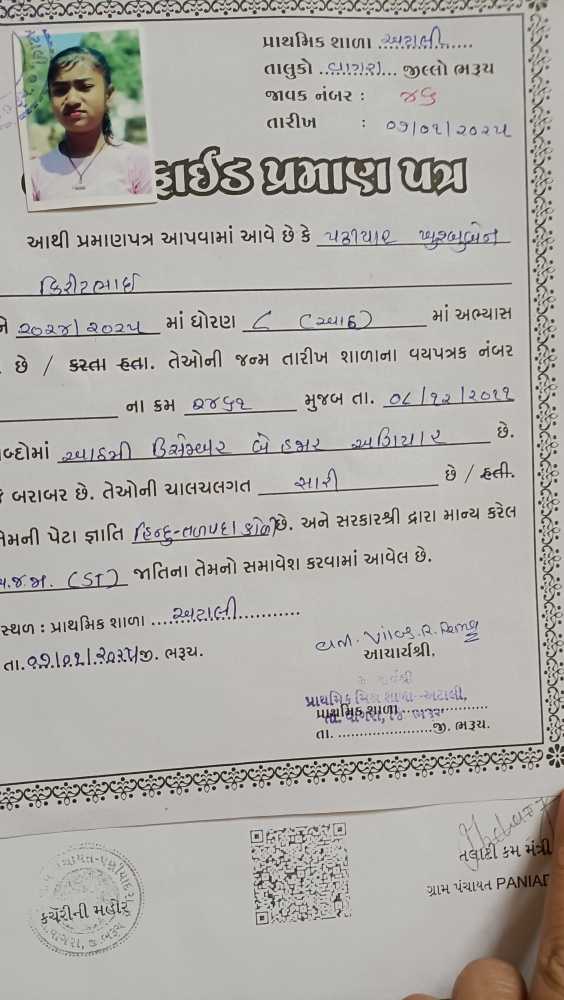 પ્રાથમિક શાળા .અટાલી......
તાલુકો ..વાગરા... જીલ્લો ભરૂચ
જાવક નંબર : ૪૬
તારીખ : ૦૧|૦૧|૨૦૨૫
પ્રમાણ પત્ર
આથી પ્રમાણપત્ર આપવામાં આવે છે કે પઢીયાર ખુશ્બુબેન
કિરીટભાઈ
૨૦૨૪|૨૦૨૫ માં ધોરણ ૮ (આઠ) માં અભ્યાસ
છે / કરતા હતા. તેઓની જન્મ તારીખ શાળાના વયપત્રક નંબર
ના ક્રમ ૨૪૬૧ મુજબ તા. ૦૮/૧૨/૨૦૧૧
આઠમી ડિસેમ્બર બે હજાર અગિયાર છે.
બરાબર છે. તેઓની ચાલચલગત સારી છે / હતી.
પેટા જ્ઞાતિ હિન્દુ-તળપદા કોળી છે. અને સરકારશ્રી દ્વારા માન્ય કરેલ
(ST) જાતિના તેમનો સમાવેશ કરવામાં આવેલ છે.
સ્થળ : પ્રાથમિક શાળા ...અટાલી............
તા.૦૧.|૦૧|.૨૦૨૫જી. ભરૂચ.
આચાર્યશ્રી,
પ્રાથમિક મિશ્ર શાળા-અટાલી,
પ્રાથમિક શાળા..................
તા. ......................જી. ભરૂચ.
તલાટી કમ મંત્રી
ગ્રામ પંચાયત
કચેરીની મહોર